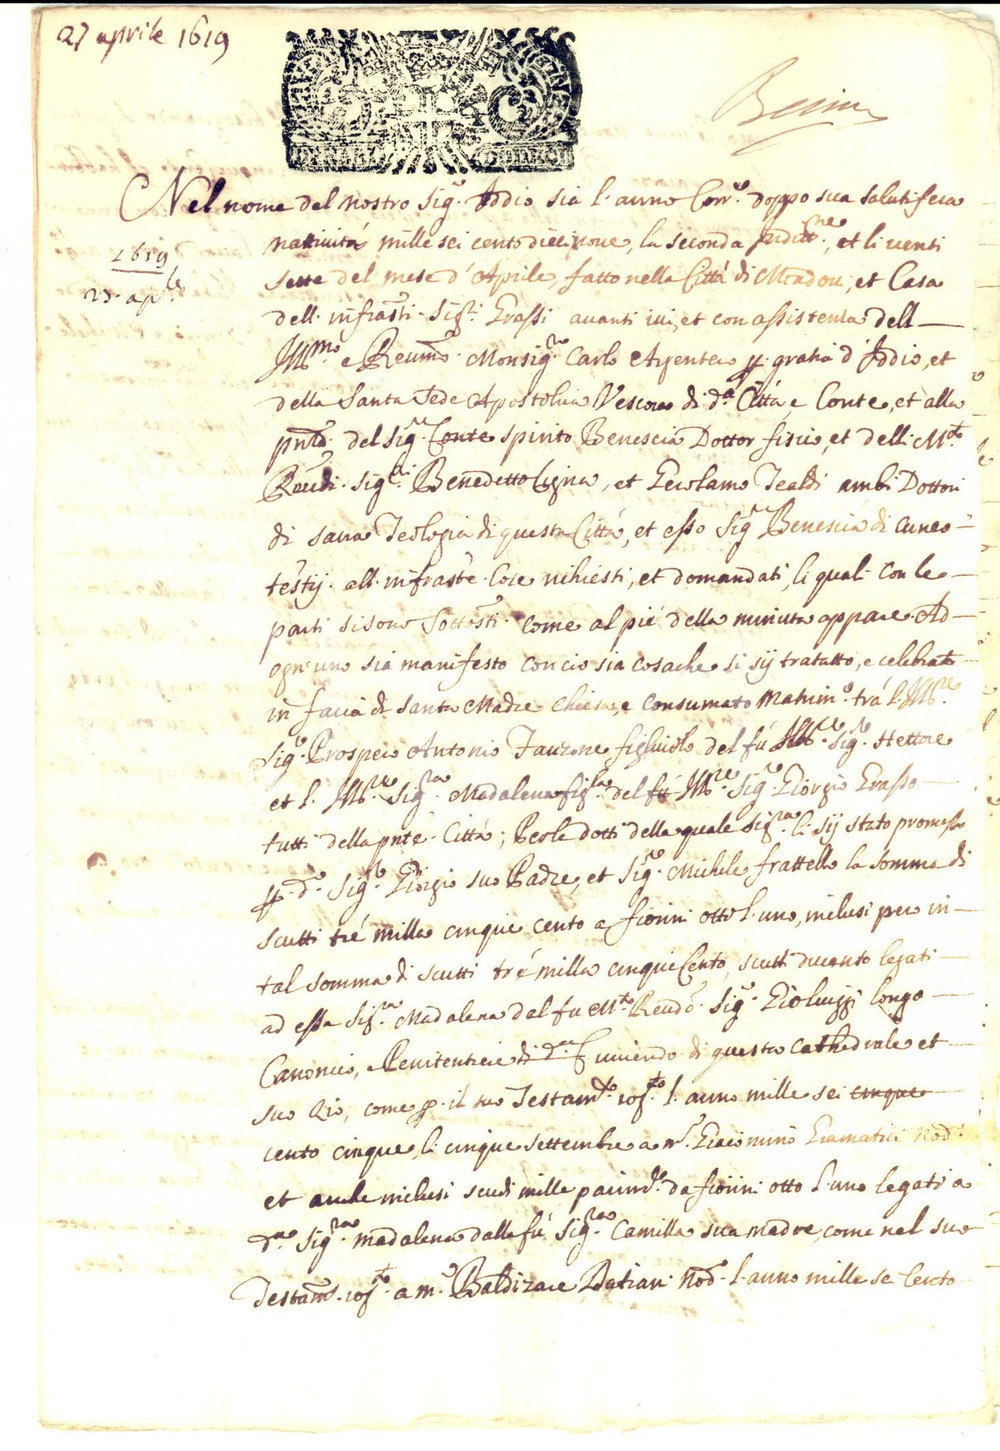 27 aprile 1619
Nel nome del nostro Sig.r Iddio sia l'anno Corr.e doppo sua salutifera
1619
27 ap.le
nattività mille sei cento diecinove, la seconda Indit.ne, et li venti
sette del mese d'Aprile, fatto nella Città di Mondovì, et Casa
dell' infrasti. Sig.ri Grassi avanti ivi, et con assistenza dell
Ill.mo e Reu.mo Monsig.r Carlo Argentero p. gratia d'Iddio, et
della Santa Sede Apostolica Vescovo di d.a Città e Conte, et alla
pnza. del Sig.r Conte spirito Benescia Dottor fisico, et delli M.to
Reudi. Sig.ri Benedetto Cigna, et Gerolamo Tealdi ambi Dottori
di sacra Teologia di questa Città, et esso Sig.r Benescia di Cuneo
testij all' infraste. Cose richiesti, et domandati, li quali con le
parti si sono Sottosti. come al pié della minuta appare. Ad
ogn' uno sia manifesto con cio sia cosache si sij trattato, e celebrato
in facia di Santa Madre Chiesa, e consumato matrim.o trá l'Ill.re
Sig.r Prospero Antonio Fauzone figliuolo del fù Ill.re Sig.r Hettore
et l' Ill.re Sig.ra Madalena fig.la del fù Ill.re Sig.r Giorgio Grasso
tutti della pnte. Città; Per le dotti della quale Sig.ra li sij stato promesso
p. d.o Sig.r Giorgio suo Padre, et Sig.r Michele frattello la somma di
scutti tré milla cinque cento a fiorini otto l'uno, inclusi pero in
tal somma di scutti tré milla cinque Cento, scutti ducento legati
ad essa Sig.ra Madalena dal fu M.to Reudo. Sig.r Gioluiggi longo
Canonico, e Penitentiere di d.a vivendo di questa Cathedrale et
suo Zio, come p. il suo Testam.to rog.to l'anno mille sei cinque
cento cinque, li cinque settembre a m.r Giacomino Gramatici Nod.o
et anche inclusi scudi mille parim.te da fiorini otto l'uno legati a
d.a Sig.ra madalena dalla fù Sig.ra Camilla sua madre, come nel suo
Testam.to rog.to a m.r Baldizare Nod. l'anno mille se Cento